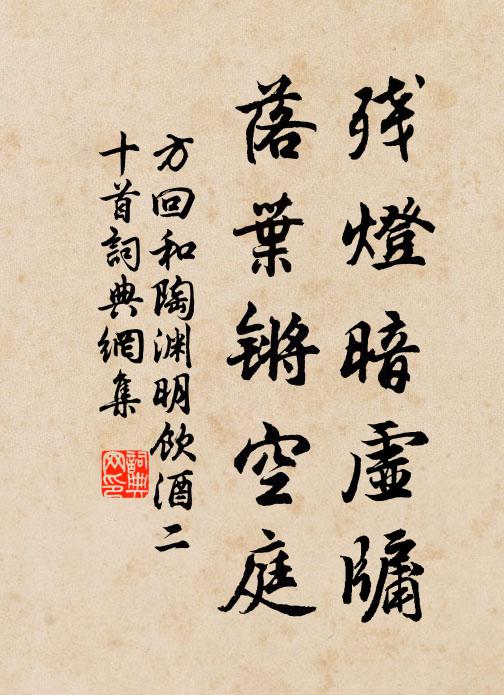 残燈暗虛牖
落葉锵空庭
方回和陶渊明飲酒二
十首詞典網集
詞典
网印